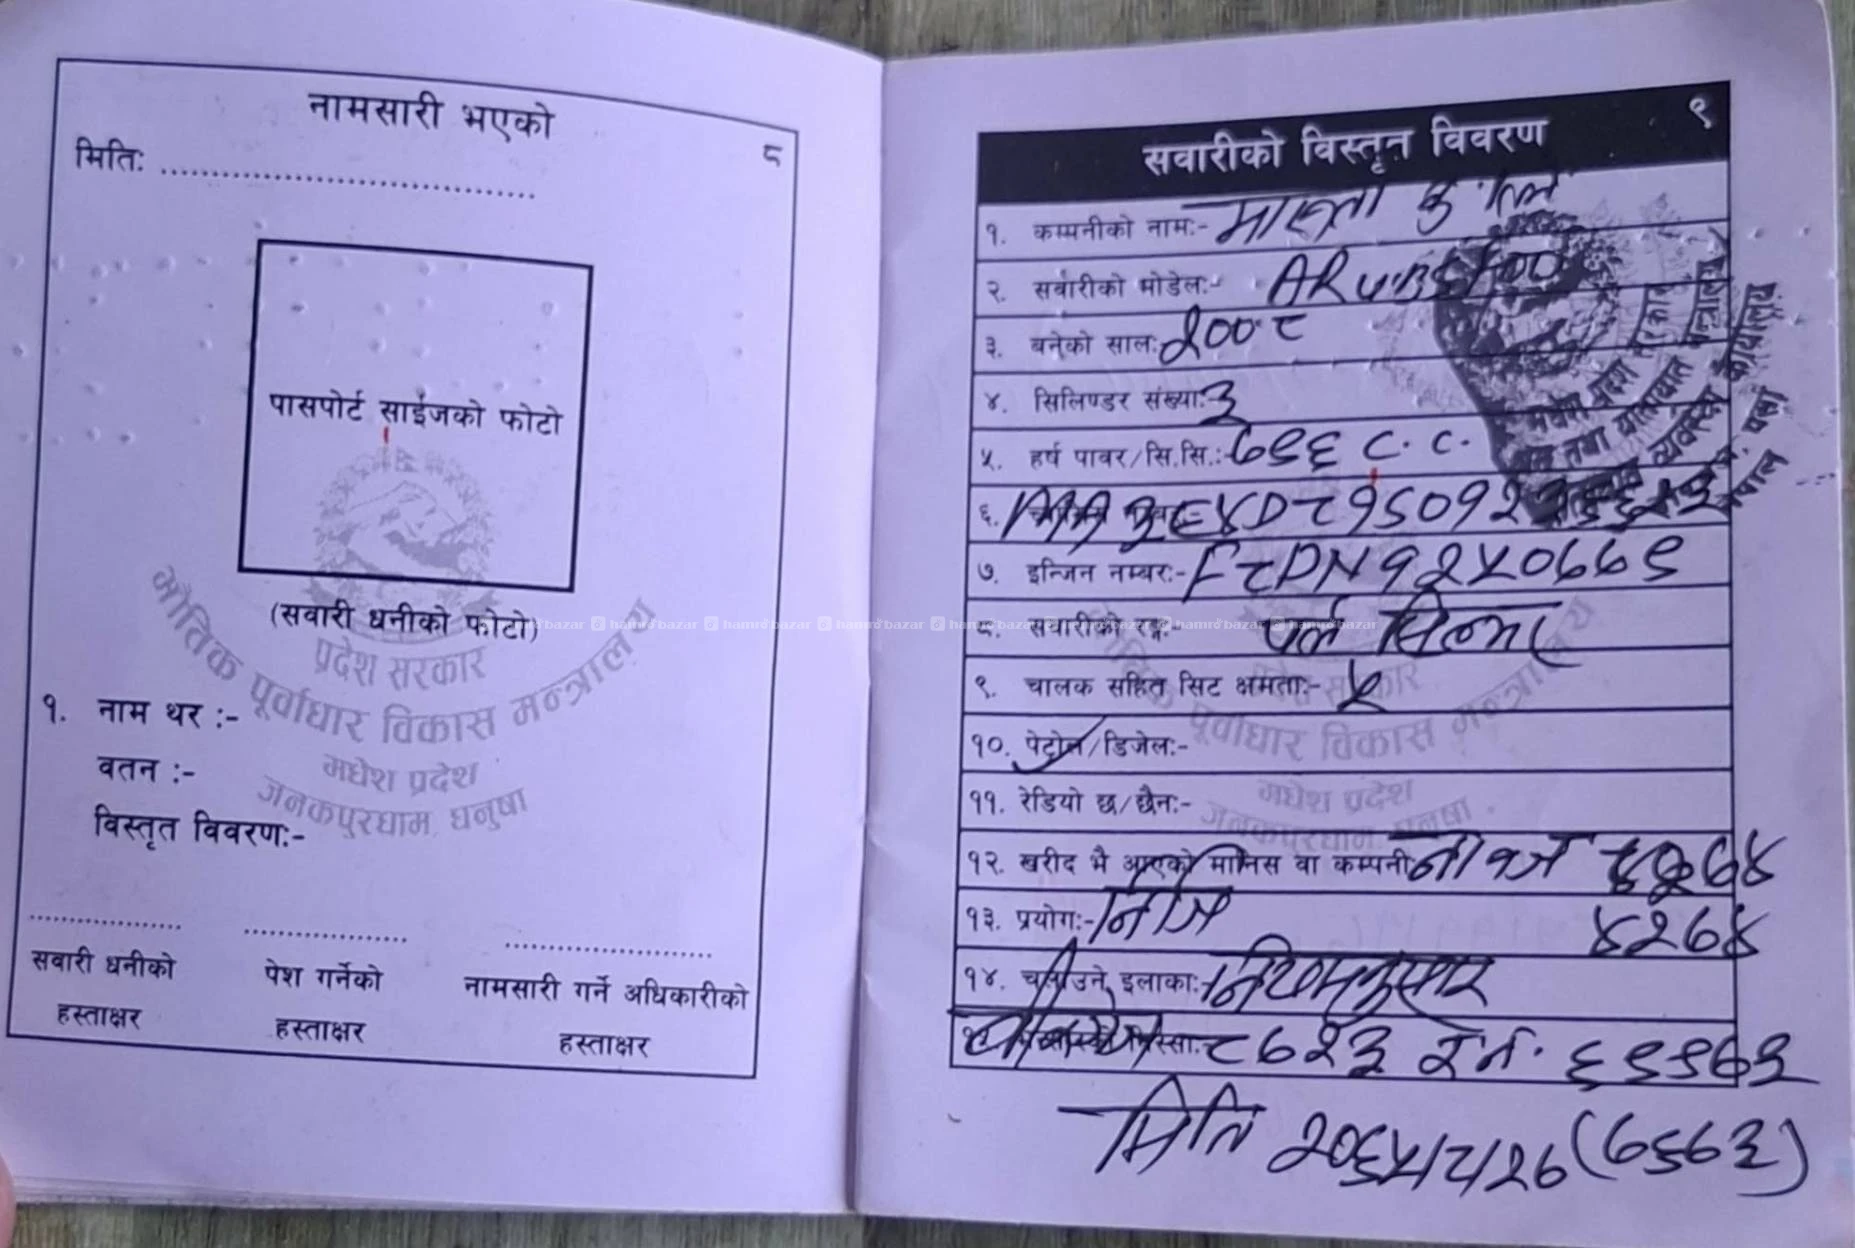 नामसारी भएको
८
मितिः ................................
पासपोर्ट साईजको फोटो
(सवारी धनीको फोटो)
प्रदेश सरकार
भौतिक पूर्वाधार विकास मन्त्रालय
मधेश प्रदेश
जनकपुरधाम, धनुषा
१. नाम थर :-
वतन :-
विस्तृत विवरणः-
सवारी धनीको
हस्ताक्षर
पेश गर्नेको
हस्ताक्षर
नामसारी गर्ने अधिकारीको
हस्ताक्षर
hamrobazar hamrobazar hamrobazar hamrobazar hamrobazar hamrobazar hamrobazar
९
सवारीको विस्तृत विवरण
१. कम्पनीको नामः-
२. सवारीको मोडेलः-
३. बनेको सालः २००८
४. सिलिण्डर संख्याः ३
५. हर्ष पावर/सि.सि.ः ७९६ C.C.
६.
७. इन्जिन नम्बरः- F८DN१२४०७७९
८. सवारीको रङ्गः- पर्ल सिल्भर
९. चालक सहित सिट क्षमताः- ५
१०. पेट्रोल/डिजेलः-
११. रेडियो छ/छैनः-
१२. खरीद भै आएको मानिस वा कम्पनीः
१३. प्रयोगः- निजि
४२७४
१४. चलाउने इलाकाः- नियमानुसार
८७२३ र.नं.
मिति २०६५/८/२७ (७६७३)